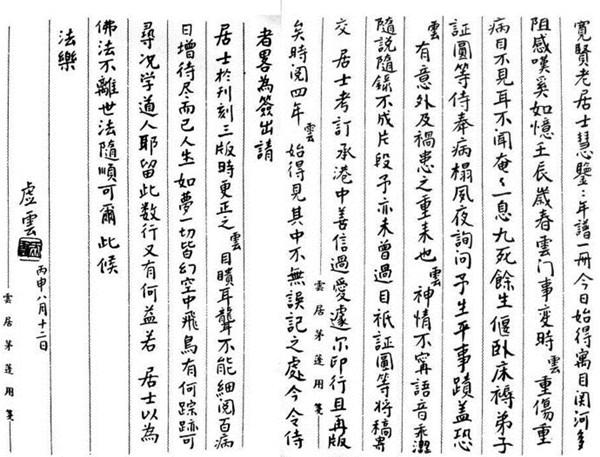 寬賢老居士慧鑒：年譜一冊今日始得寓目関河多
阻感嘆奚如憶壬辰歲春雲门事变時雲重傷重
病目不見耳不闻奄々一息九死餘生偃卧床褥弟子
証圓等侍奉病榻夙夜詢问予生平事蹟蓋恐
雲有意外及禍患之重来也雲神情不寧語音乖澀
隨說隨錄不成片段予亦未曾過目祇証圓等将稿寄
交 居士考訂承港中善信過愛遽尔印行且再版
雲居茅蓬用箋
矣時阅四年雲始得見其中不無誤记之處今令侍
者畧為簽出請
居士於刊刻三版時更正之雲目瞶耳聾不能細阅百病
日增待尽而已人生如夢一切皆幻空中飛鳥有何踪跡可
尋况学道人耶留此数行又有何益若 居士以為
佛法不離世法隨順可爾 此候
法樂
虛雲
丙申八月十二日
雲居茅蓬用箋